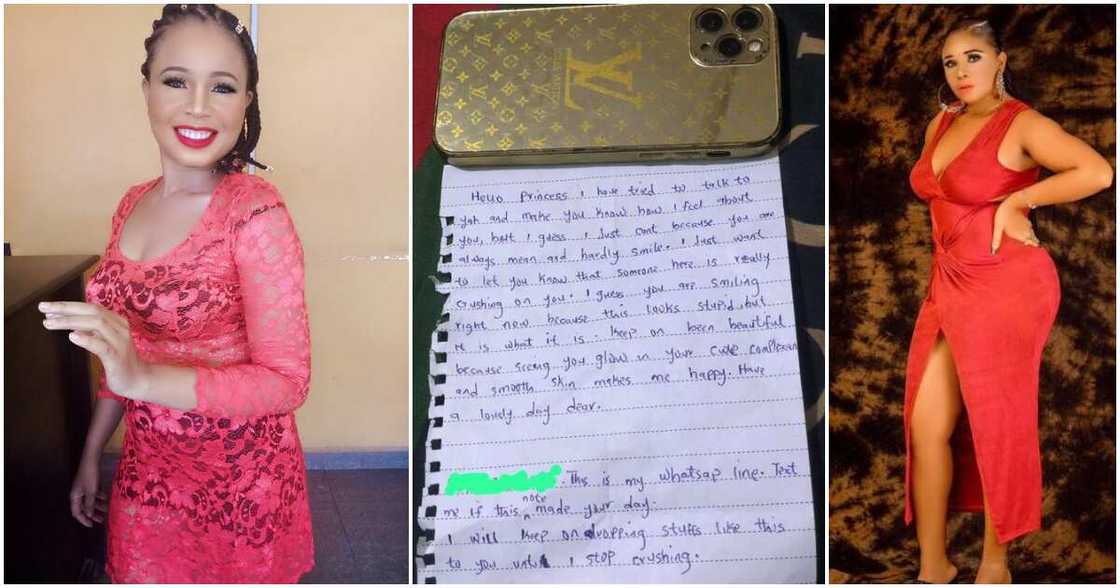 LV
LOUIS VUITTON
Hello Princess I have tried to talk to
yoh and make you know how I feel about
you, but I guess I Just cant because you are
always mean and hardly smile. I Just want
to let you know that someone here is really
crushing on you. I guess you are smiling
right now because this looks stupid but
it is what it is. keep on been beautiful
because seeing you glow in your cute complexion
and smooth skin makes me happy. Have
a lovely day dear.
. This is my whatsap line. Text
me if this note made your day
I will keep on dropping stuffs like this
to you until I stop crushing.